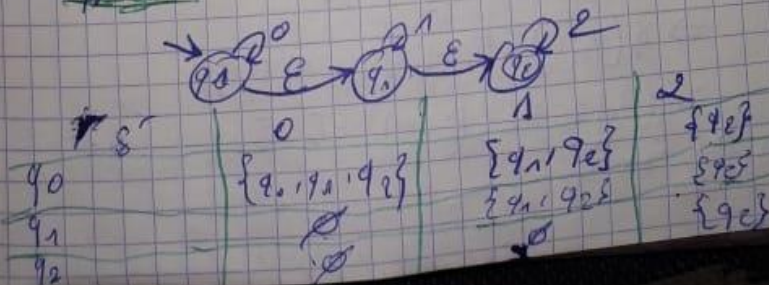 0 1 2
q0 ε q1 ε q2
δ' 0 1 2
q0 {q0, q1, q2} {q1, q2} {q2}
q1 ∅ {q1, q2} {q2}
q2 ∅ ∅ {q2}